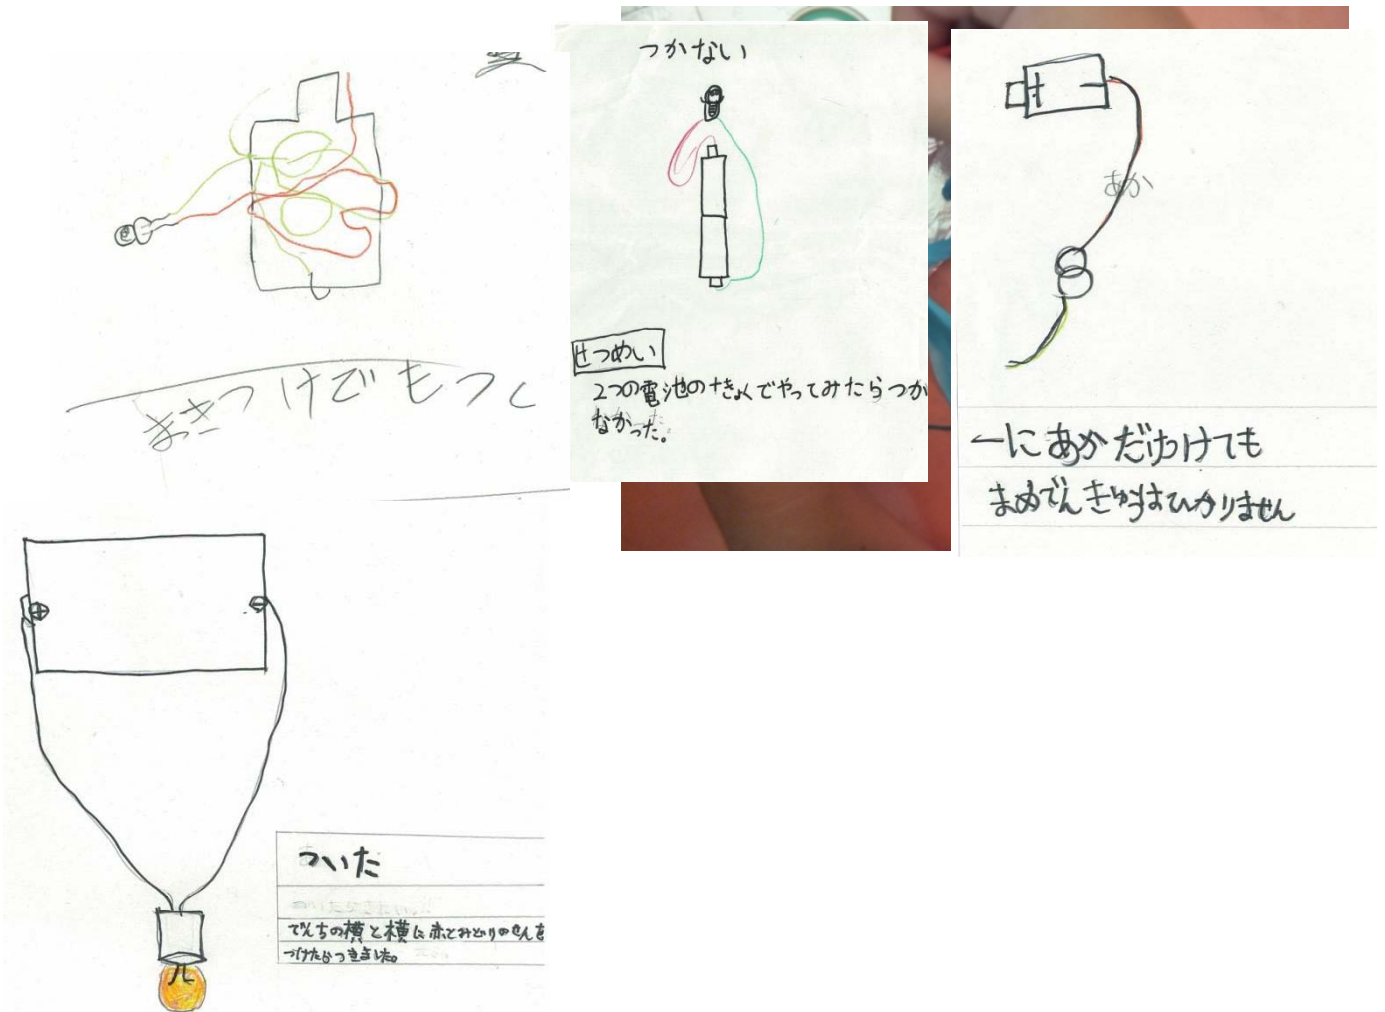 まきつけでもつく
つかない
せつめい
2つの電池の+きょくでやってみたらつか
なかった。
+ −
あか
ーにあかだけつけても
まめでんきゅうはひかりません
+ −
ついた
でんちの横と横に赤とみどりのせんを
つけたらつきました。